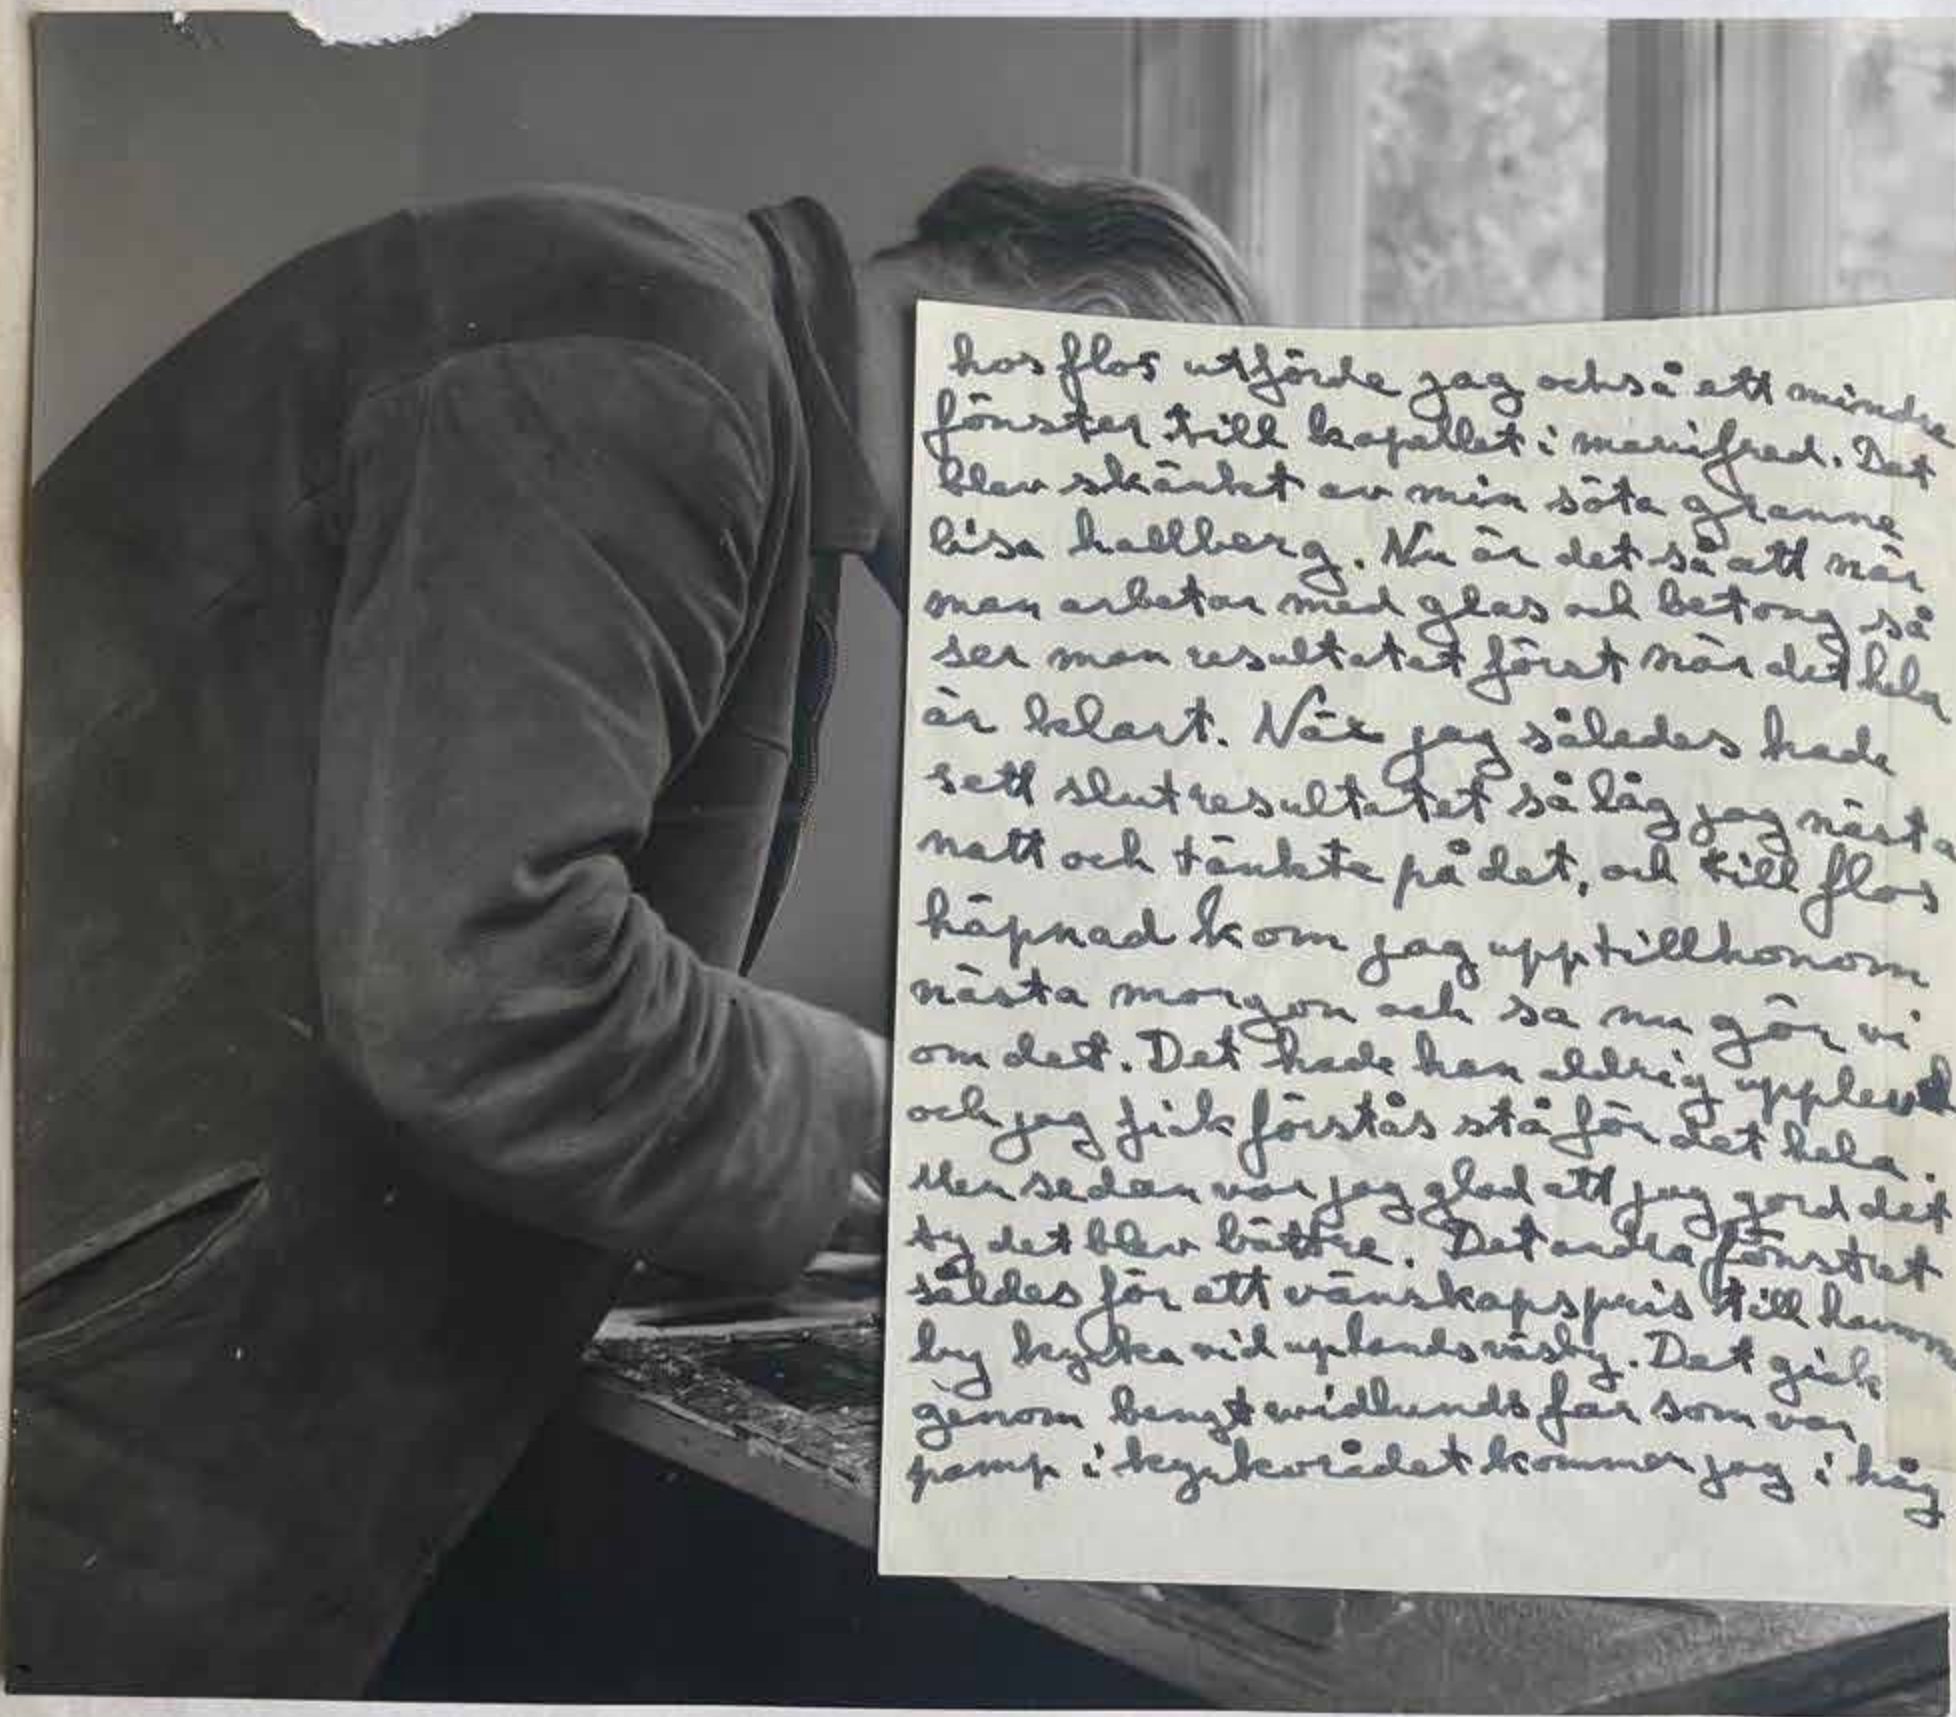 hos flos utförde jag också ett mindre
fönster till kapellet i mariefred. Det
blev skänkt av min söta granne
lisa hallberg. Nu är det så att när
man arbetar med glas och betong så
ser man resultatet först när det hela
är klart. När jag således hade
sett slutresultatet så låg jag nästa
natt och tänkte på det, och till flos
häpnad kom jag upp till honom
nästa morgon och sa nu gör vi
om det. Det hade han aldrig upplevt
och jag fick förstås stå för det hela.
Men sedan var jag glad att jag gord det
ty det blev bättre. Det andra fönstret
såldes för ett vänskapspris till hamm
by kyrka vid uplandsväsby. Det gick
genom bengt widlunds far som var
pamp i kyrkorådet kommer jag i håg